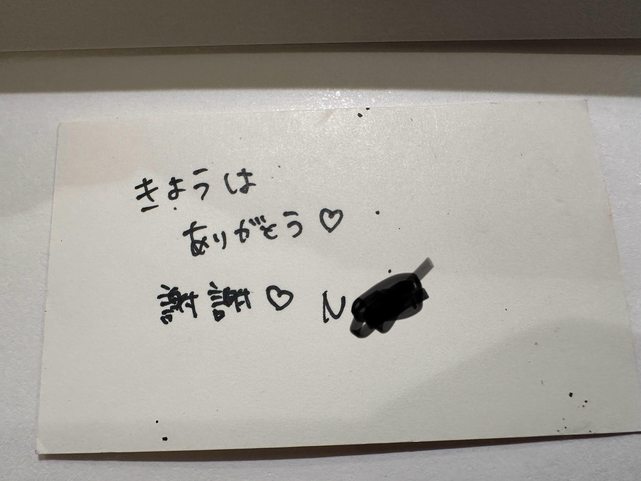 きょうは
ありがとう♡
謝謝♡ N